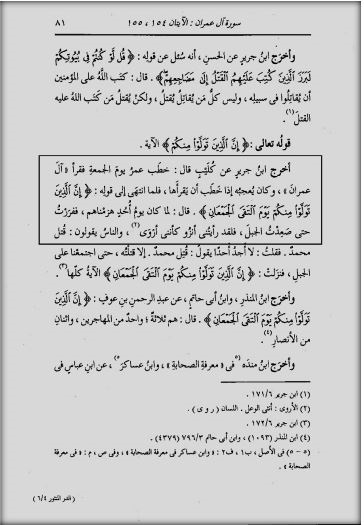 سورة آل عمران : الآيتان ١٥٤ ، ١٥٥
٨١
وأخرج ابنُ جريرٍ عن الحسنِ ، أنه سُئل عن قولِه : ﴿ قُل لَّوْ كُنتُمْ فِى بُيُوتِكُمْ
لَبَرَزَ ٱلَّذِينَ كُتِبَ عَلَيْهِمُ ٱلْقَتْلُ إِلَىٰ مَضَاجِعِهِمْ ﴾ . قال : كتَب اللَّهُ على المؤمنين
أن يُقاتِلُوا فى سبيلِه ، وليس كلُّ مَن يُقاتِلُ يُقتَلُ ، ولكنْ يُقتَلُ مَن كتَب اللهُ عليه
القتلَ (١) .
قولُه تعالى : ﴿ إِنَّ ٱلَّذِينَ تَوَلَّوْا۟ مِنكُمْ ﴾ الآية .
أخرج ابنُ جريرٍ عن كُلَيْبٍ قال : خطَب عمرُ يومَ الجمعةِ فقرأ « آلَ
عمرانَ » ، وكان يُعجِبُه إذا خطَب أن يَقرأَها ، فلما انتهَى إلى قولِه : ﴿ إِنَّ ٱلَّذِينَ
تَوَلَّوْا۟ مِنكُمْ يَوْمَ ٱلْتَقَى ٱلْجَمْعَانِ ﴾ . قال : لما كان يومُ أُحُدٍ هزَمْناهم ، ففرَرْتُ
حتى صَعِدْتُ الجبلَ ، فلقد رأيتُنى أنزُو كأننى أَرْوَى (٢) ، والناسُ يقولون : قُتِل
محمدٌ . فقلتُ : لا أجدُ أحدًا يقولُ : قُتِل محمدٌ . إلا قتلتُه ، حتى اجتمعْنا على
الجبلِ ، فنزلت : ﴿ إِنَّ ٱلَّذِينَ تَوَلَّوْا۟ مِنكُمْ يَوْمَ ٱلْتَقَى ٱلْجَمْعَانِ ﴾ الآيةُ كلُّها (٣) .
وأخرَج ابنُ المنذرِ ، وابنُ أبى حاتمٍ ، عن عبدِ الرحمنِ بنِ عوفٍ : ﴿ إِنَّ ٱلَّذِينَ
تَوَلَّوْا۟ مِنكُمْ يَوْمَ ٱلْتَقَى ٱلْجَمْعَانِ ﴾ . قال : هم ثلاثةٌ ؛ واحدٌ من المهاجرين ، واثنانِ
من الأنصارِ (٤) .
وأخرَج ابنُ منده (٥ فى « معرفةِ الصحابةِ » ، وابنُ عساكرَ ٥) ، عن ابنِ عباسٍ فى
(١) ابن جرير ١٧١/٦ .
(٢) الأروى : أنثى الوعل . اللسان ( ر و ى ) .
(٣) ابن جرير ١٧٢/٦ .
(٤) ابن المنذر (١٠٩٣) ، وابن أبى حاتم ٧٩٦/٣ (٤٣٧٩) .
(٥ - ٥) فى الأصل ، ب١ ، ف٢ : « وابن عساكر فى معرفة الصحابة » ، وفى ص ، م : « فى معرفة
الصحابة » .
( الدر المنثور ٦/٤ )